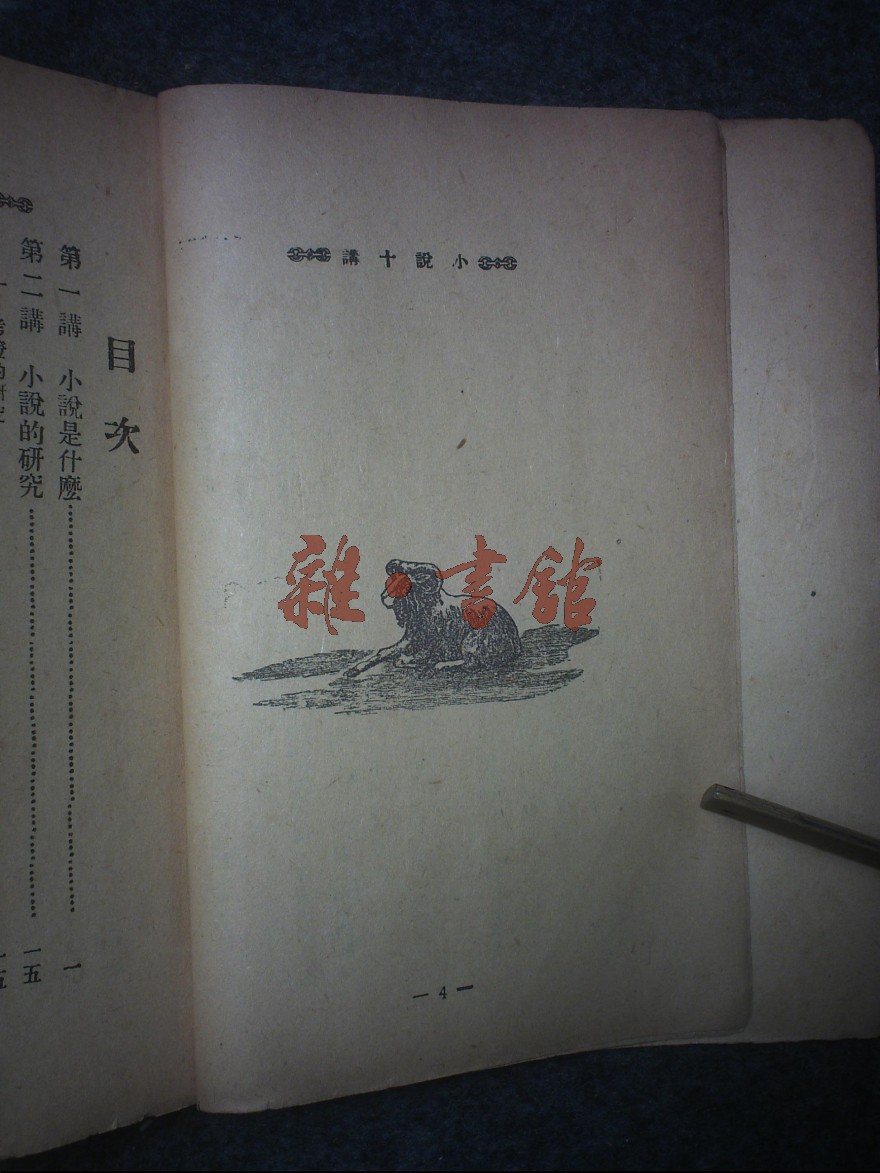 小說十講
雜·書館
— 4 —
目次
第一講 小說是什麼……一
第二講 小說的研究……一五